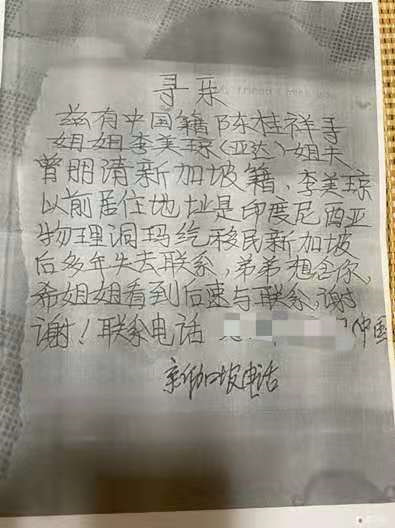 寻亲
兹有中国籍陈桂祥寻
姐姐李美琼(亚达)姐夫
曾明清新加坡籍,李美琼
以前居住地址是印度尼西亚
物理洞玛纶移民新加坡
后多年失去联系,弟弟想念你,
希姐姐看到后速与联系谢
谢!联系电话 中国
新加坡电话